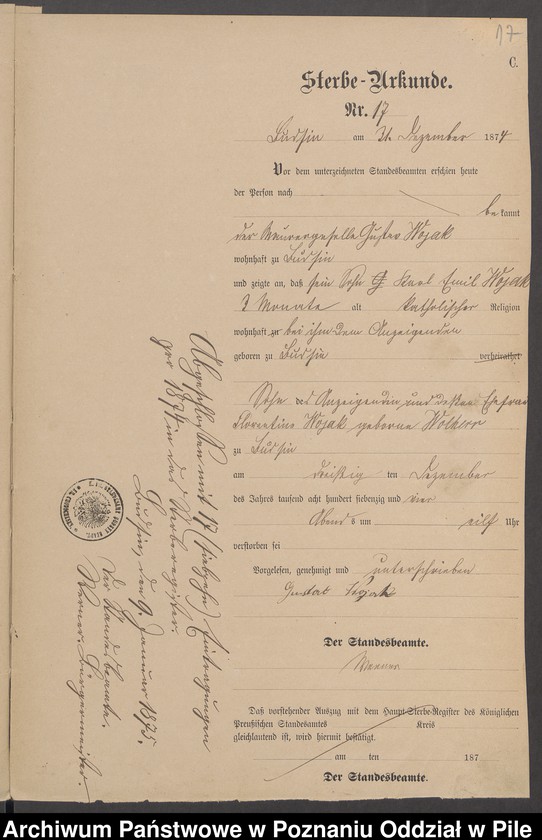 17
C.
Sterbe-Urkunde.
Nr. 17
Budsin am 31. Dezember 1874
Vor dem unterzeichneten Standesbeamten erschien heute
der Person nach
bekannt
der Maurergeselle Gustav Wojak
wohnhaft zu Budsin
und zeigte an, daß sein Sohn G Karl Emil Wojak
2 Monate alt katholischer Religion
wohnhaft zu bei ihm dem Anzeigenden
geboren zu Budsin verheirathet
Sohn des Anzeigenden und dessen Ehefrau
Florentine Wojak geborne
zu Budsin
am dreißig ten Dezember
des Jahres tausend acht hundert siebenzig und vier
Abends um eilf Uhr
verstorben sei
Vorgelesen, genehmigt und unterschrieben
Gustav Wojak
Der Standesbeamte.
Werner
Daß vorstehender Auszug mit dem Haupt-Sterbe-Register des Königlichen
Preußischen Standesamtes Kreis
gleichlautend ist, wird hiermit bestätigt.
am ten 187
Der Standesbeamte.
Abgeschlossen mit 17 (siebzehn) Eintragungen
pro 1874 in das Sterberegister.
Budsin, den 9. Januar 1875.
Der Standesbeamte.
Werner, Bürgermeister.
Archiwum Państwowe w Poznaniu Oddział w Pile